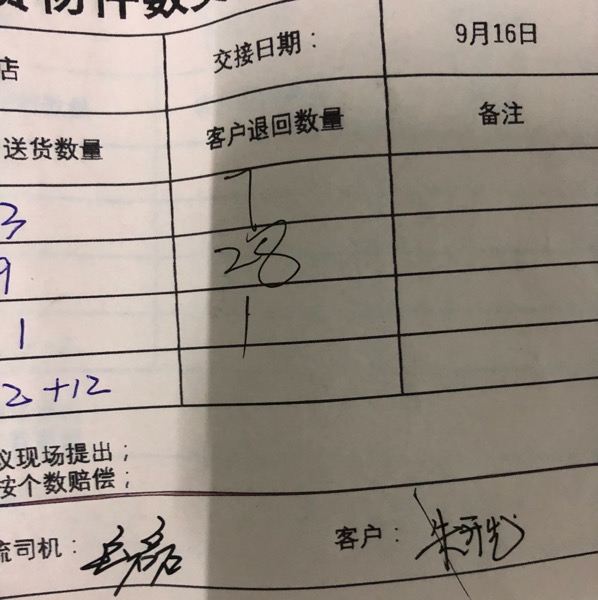 货物件数
店 交接日期： 9月16日
送货数量 客户退回数量 备注
3 7
9 28
1 1
2 +12
议现场提出；
按个数赔偿；
流司机： 客户：